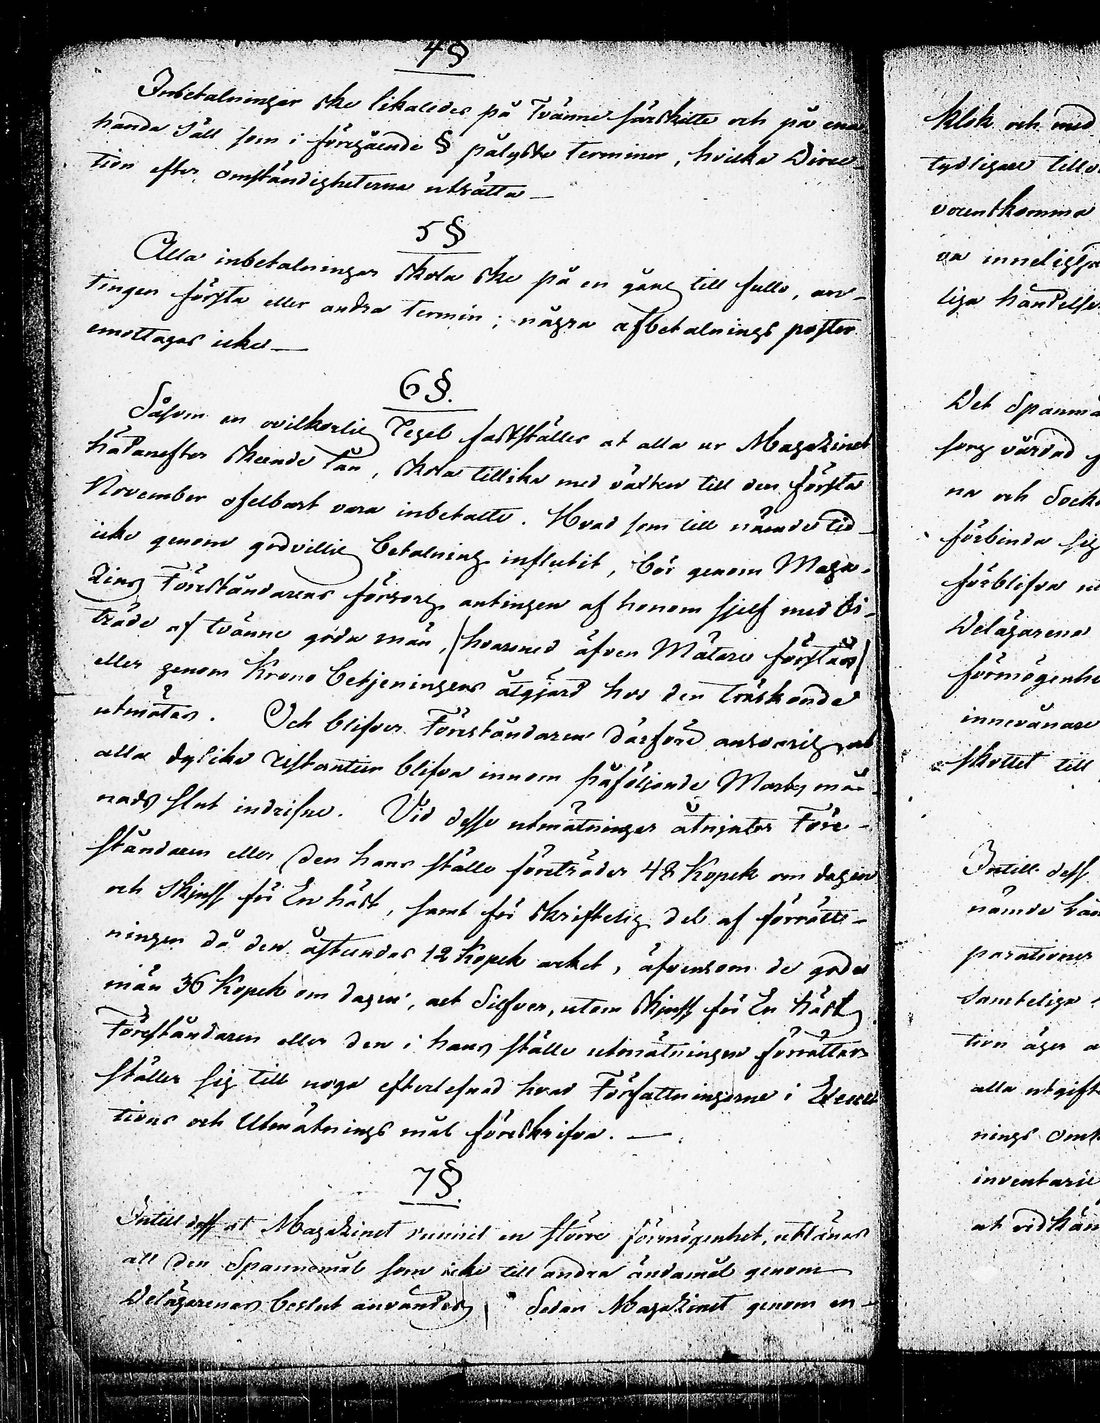 4§
Inbetalningar ske likaledes på Tvänne särskilte och på ena
handa sätt som i föregående § pålyste terminer, hvilka Direc-
tion efter omständigheterna utsätta —
5§
Alla inbetalningar skola ske på en gång till fullo, an-
tingen första eller andra termin; några afbetalnings poster
emottages icke —
6§.
Såsom en ovilkorlig Regel fastställes at alla ur Magazinet
hädanefter skeende lån, skola tillika med växten till den första
November ofelbart vara inbetalte. Hvad som till nämde tid
icke genom godvillig betalning influtit, bör genom Maga-
zins Föreståndarens försorg antingen af honom sjelf med bi-
träde af tvänne gode män, (hvarmed äfven Mätare förstås)
eller genom Krono betjeningens åtgjärd hos den tredskande
utmätas. Och blifver Föreståndaren därföre ansvarig at
alla dylika restantier blifva innom påföljande Marty må-
nads slut indrifne. Vid desse utmätningar åtnjuter Före-
ståndaren eller den hans ställe företräder 48 Kopek om dagen
och skjuss för En häst, samt för skriftelig del af förrätt-
ningen då den åstundas 12 Kopek arket, äfvensom de gode
män 36 Kopek om dagen, alt Silfver, utom skjuss för En häst
Föreståndaren eller den i hans ställe utmätningen förrättar
ställer sig till noga efterlefnad hvad Författningarne i Execu
tions och Utmätnings mål föreskrifva. —
7§.
Intill dess at Magazinet vunnit en större förmögenhet, utlånas
all den Spannemål som icke till andra ändamål genom
Delägarenas beslut användes | Sedan Magazinet genom en-
klok och med
tydligare
vorentkomma
va inneligga
liga händelse
Det Spannmå
sorg vårdad
na och Sock
förbinda sig
förblifva
Delägarena
förmögenhe
innevånare
skottet till
Intill dess
nämde
parationer
samtelige
tion äger
alla utgift
nings omk
inventarie
at vidhän